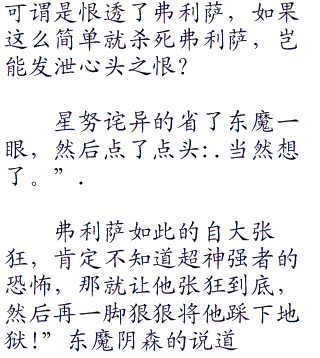 可谓是恨透了弗利萨，如果
这么简单就杀死弗利萨，岂
能发泄心头之恨？
星努诧异的省了东魔一
眼，然后点了点头:.当然想
了。”.
弗利萨如此的自大张
狂，肯定不知道超神强者的
恐怖，那就让他张狂到底，
然后再一脚狠狠将他踩下地
狱!”东魔阴森的说道